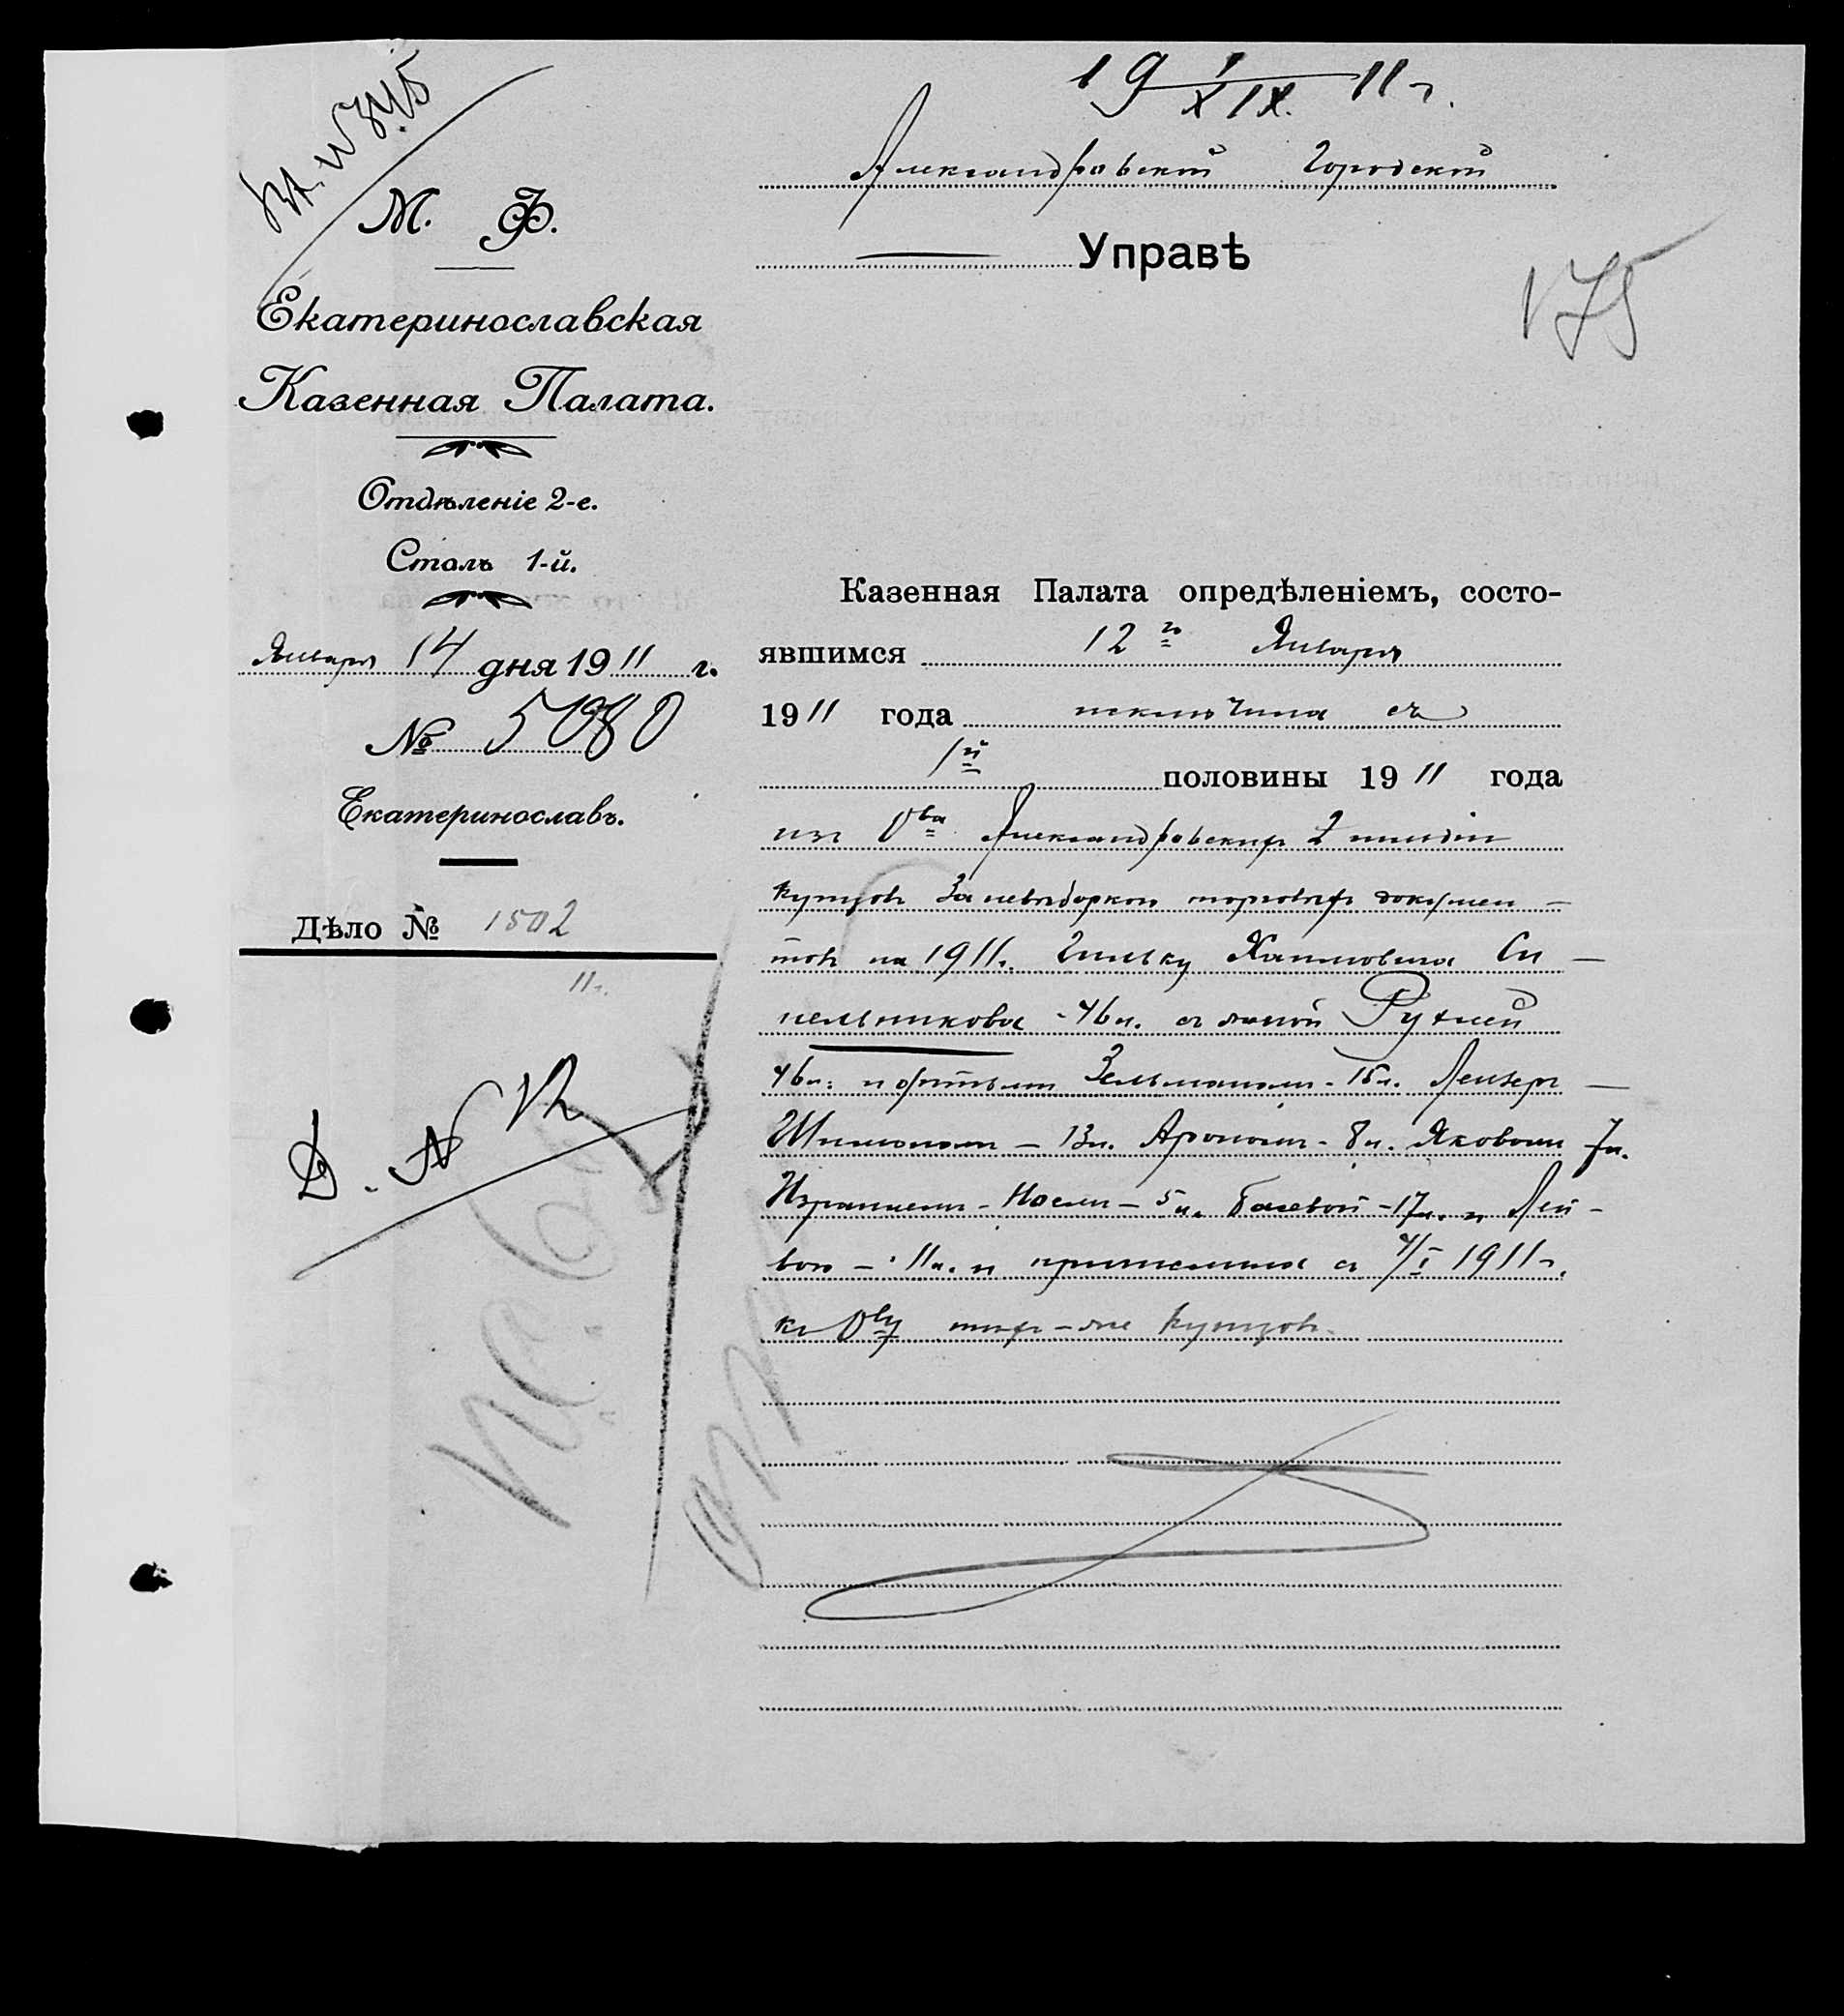 Вх. № 845
М. Ф.
Екатеринославская
Казенная Палата.
Отдѣленіе 2-е.
Столъ 1-й.
Января 14 дня 1911 г.
№ 5080
Екатеринославъ.
Дѣло № 1502
11г.
19 I/XIX. 11 г.
Александровской Городской
Управѣ
175
Казенная Палата опредѣленіемъ, состо-
явшимся 12го Января
1911 года исключила съ
1й половины 1911 года
изъ Ова Александровскихъ 2 гильдіи
купцовъ за невыборкою торговыхъ докумен-
товъ на 1911г. Гильку Хаимовича Си-
нельникова - 46л. съ женой Рухлей
46л. и дѣтьми Зельманомъ - 15л. Лейзеръ -
Шимономъ - 13л. Арономъ - 8л. Яковомъ 7л.
Израилемъ - Носем - 5л. Басевой - 17л. и Лей-
бою - 11л. и причислила съ 1/I 1911г.
къ Ову тѣхъ-же купцовъ.